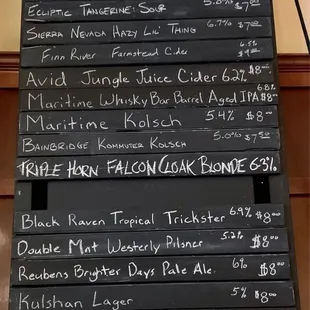 Ecliptic Tangerine Sour 5.0% $7.00
Sierra Nevada Hazy Lil' Thing 6.7% $7.00
Finn River Farmstead Cider 6.5%
Avid Jungle Juice Cider 6.2% $8.00
Maritime Whisky Bar Barrel Aged IPA 6.8% $8.00
Maritime Kolsch 5.4% $8.00
Bainbridge Kommuter Kolsch 5.0% $7.50
Triple Horn Falcon Cloak Blonde 6.3%
Black Raven Tropical Trickster 6.9% $8.00
Double Mnt Westerly Pilsner 5.2% $8.00
Reubens Brighter Days Pale Ale 6% $8.00
Kulshan Lager 5% $8.00